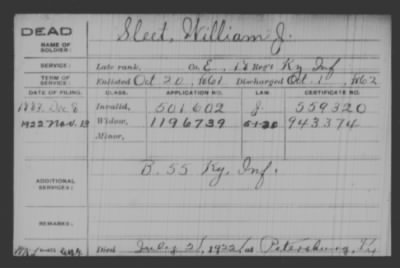 DEAD
NAME OF SOLDIER: Sleet, William J.
SERVICE: Late rank, Co. E, 18 Reg't Ky Inf
TERM OF SERVICE: Enlisted Oct 20, 1861 Discharged Oct. 1, 1862
DATE OF FILING. CLASS. APPLICATION NO. LAW. CERTIFICATE NO.
1883, Dec 8 Invalid, 501602 J. 559320
1922 Nov. 13 Widow, 1196739 5-1-20 943374
Minor,
ADDITIONAL SERVICES: B. 55 Ky. Inf.
REMARKS:
Died July 21, 1922, at Petersburg, Ky